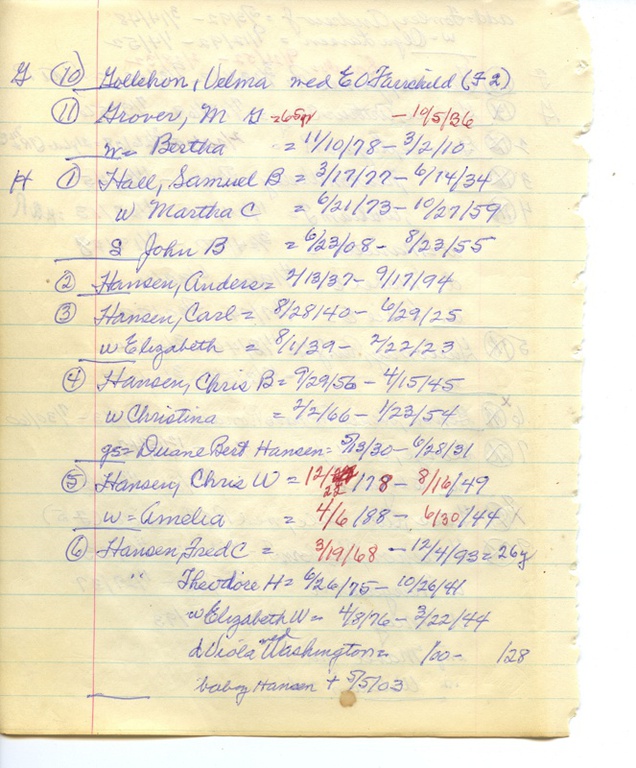 G (10) Gollehon, Velma wed E O Fairchild (F2)
(11) Grover, M G =65yr - 10/5/36
w= Bertha = 11/10/78 - 3/2/10
H (1) Hall, Samuel B = 3/17/77 - 6/14/34
w Martha C = 6/21/73 - 10/27/59
S John B = 6/23/08 - 8/23/55
(2) Hansen, Anders = 2/13/37 - 9/17/94
(3) Hansen, Carl = 8/28/40 - 6/29/25
w Elizabeth = 8/1/39 - 2/22/23
(4) Hansen, Chris B = 9/29/56 - 4/15/45
w Christina = 2/2/66 - 1/23/54
gs= Duane Bert Hansen = 5/13/30 - 6/28/31
(5) Hansen, Chris W = 12/22/78 - 8/16/49
w= Amelia = 4/6/88 - 6/30/44
(6) Hansen, Fred C = 3/19/68 - 12/4/93 = 26y
" Theodore H = 6/26/75 - 10/26/41
w Elizabeth W = 4/8/76 - 3/22/44
d Viola wed Washington = /00 - /28
baby Hansen + 5/5/03